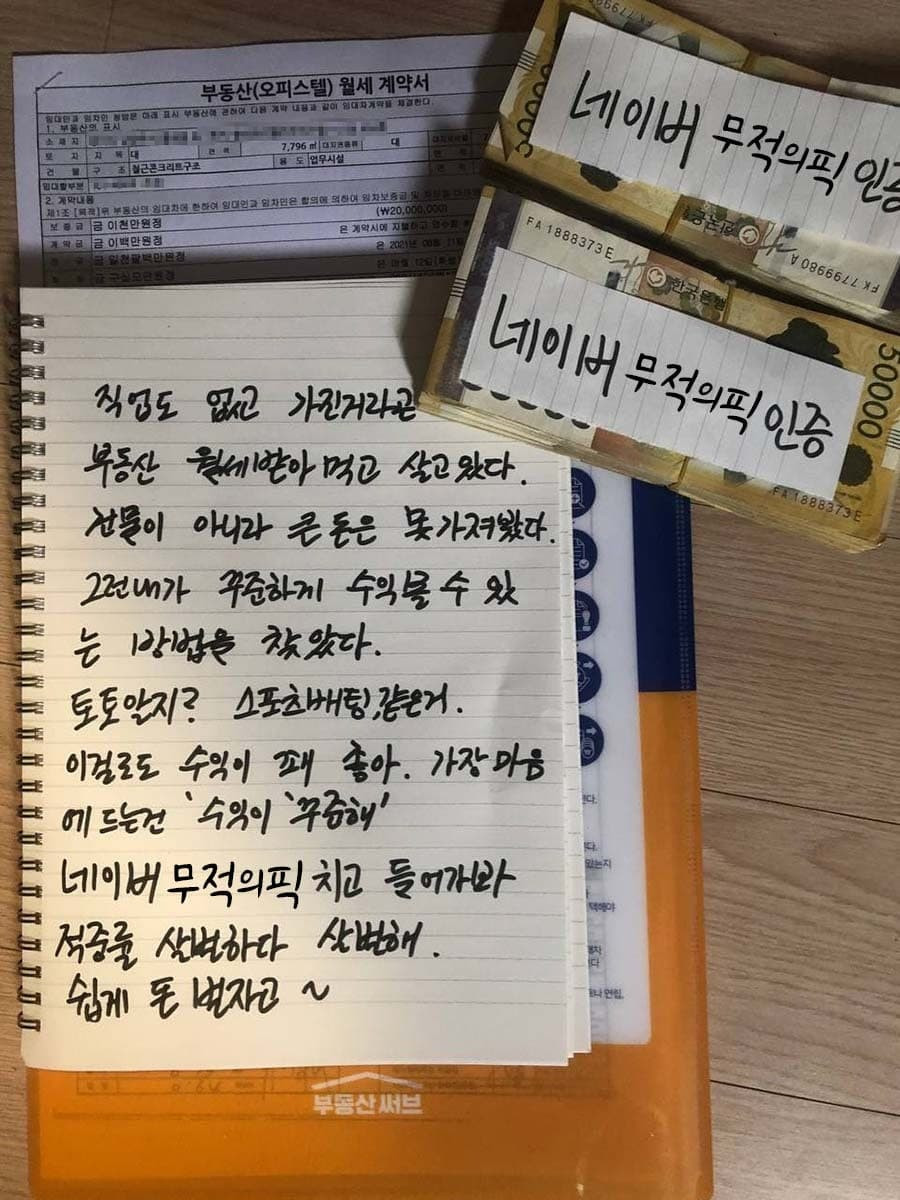 부동산(오피스텔) 월세 계약서
임대인과 임차인 쌍방은 아래 표시 부동산에 관하여 다음 계약 내용과 같이 임대차계약을 체결한다.
1. 부동산의 표시
소 재 지
토 지 지 목 대 면 적 7,796 ㎡ 대지권종류
건 물 구 조 철근콘크리트구조 용 도 업무시설
임대할부분
2. 계약내용
제1조 [목적] 위 부동산의 임대차에 한하여 임대인과 임차인은 합의에 의하여 임차보증금 및
보 증 금 금 이천만원정 (₩20,000,000)
계 약 금 금 이백만원정 은 계약시에 지불하고
금 일천팔백만원정 은
네이버 무적의픽 인증
50000
FA 1888373 E
한국은행
FK 7799980 A
네이버 무적의픽 인증
50000
FA 1888373 E
직업도 없고 가진거라곤
부동산 월세받아 먹고 살고있다.
건물이 아니라 큰 돈은 못가져왔다.
그런내가 꾸준하게 수익볼 수 있
는 1방법을 찾았다.
토토알지? 스포츠배팅,같은거.
이걸로도 수익이 꽤 좋아. 가장마음
에 드는건 '수익이 '꾸준해'
네이버 무적의픽 치고 들어가봐
적중률 살벌하다 살벌해.
쉽게 돈 벌자고 ~
부동산써브